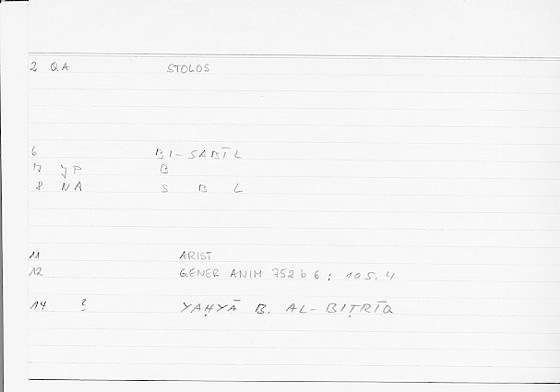 2 QA STOLOS
6 BI-SABĪL
7 YP B
8 NA S B L
11 ARIST
12 GENER ANIM 752 b 6 : 105.4
14 ? YAḤYĀ B. AL-BIṬRĪQ